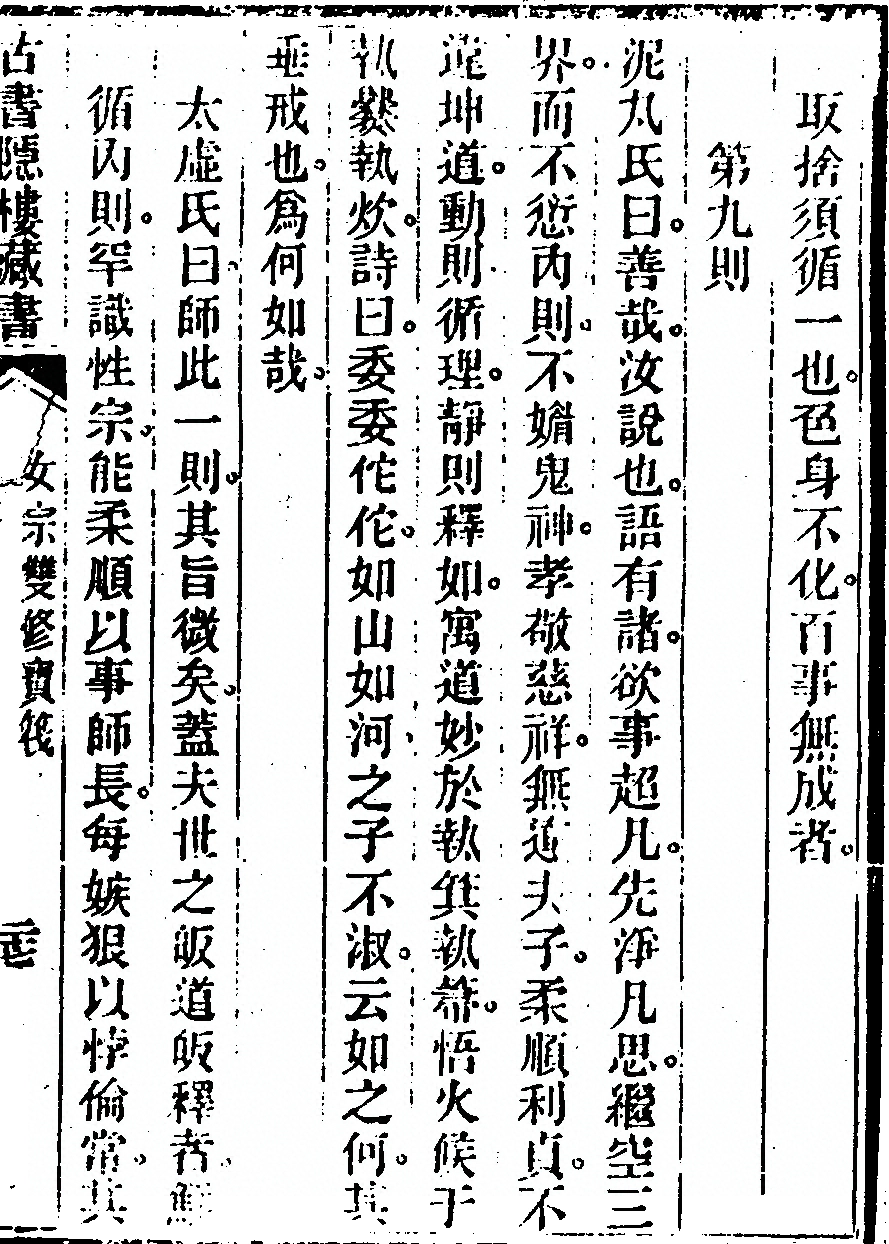 取捨須循一也色身不化百事無成者
第九則
泥丸氏曰善哉汝說也語有諸欲事超凡先淨凡思繼空三
界而不愆內則不媚鬼神孝敬慈祥無違夫子柔順利貞不
違坤道動則循理靜則釋如寓道妙於執箕執箒悟火候于
執爨執炊詩曰委委佗佗如山如河之子不淑云如之何其
垂戒也為何如哉
太虛氏曰師此一則其旨微矣蓋夫世之皈道皈釋者鮮
循內則罕識性宗能柔順以事師長每嫉狠以悖倫常其
古書隱樓藏書
女宗雙修寶筏